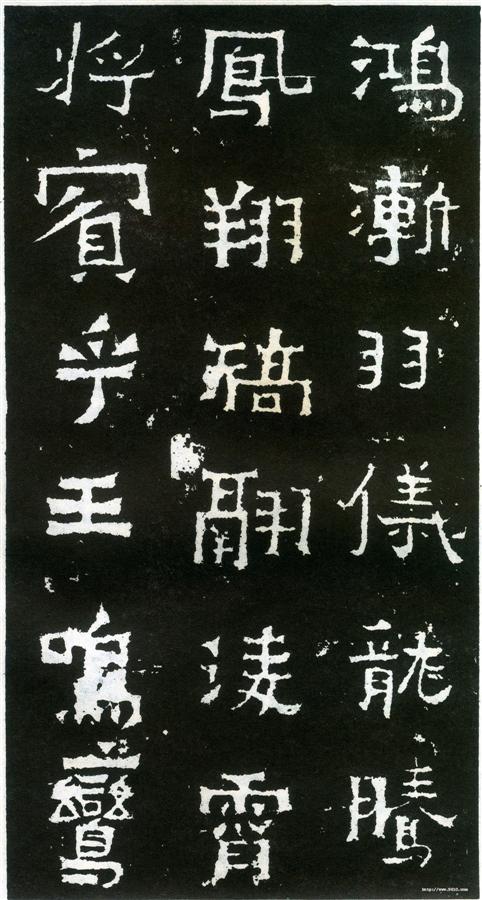 鴻漸羽儀龍騰
鳳翔矯翮淩霄
將賓乎王鳴鸞
http://www.9610.com